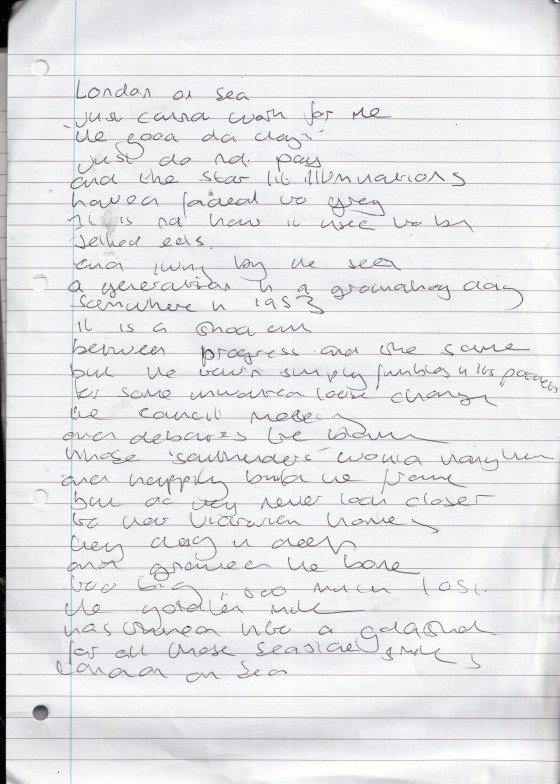 London on Sea
just cannot work for me
'the good old days'
just do not pay
and the star lit illuminations
have faded to grey
It is not how it used to be
Jellied eels.
and by the sea
a generation in a day
Somewhere in 1953
it is a
between progress and the same
but the town simply fumbles in its pockets
for some unwanted loose change
the council meets
and debates the blame
whose 'southenders' would
and happily build the frame
but as they never look closer
to their Victorian homes
they in deep
and the bone
too big, too much lost.
the golden mile
has turned into a
for all those seaside smiles
London on Sea